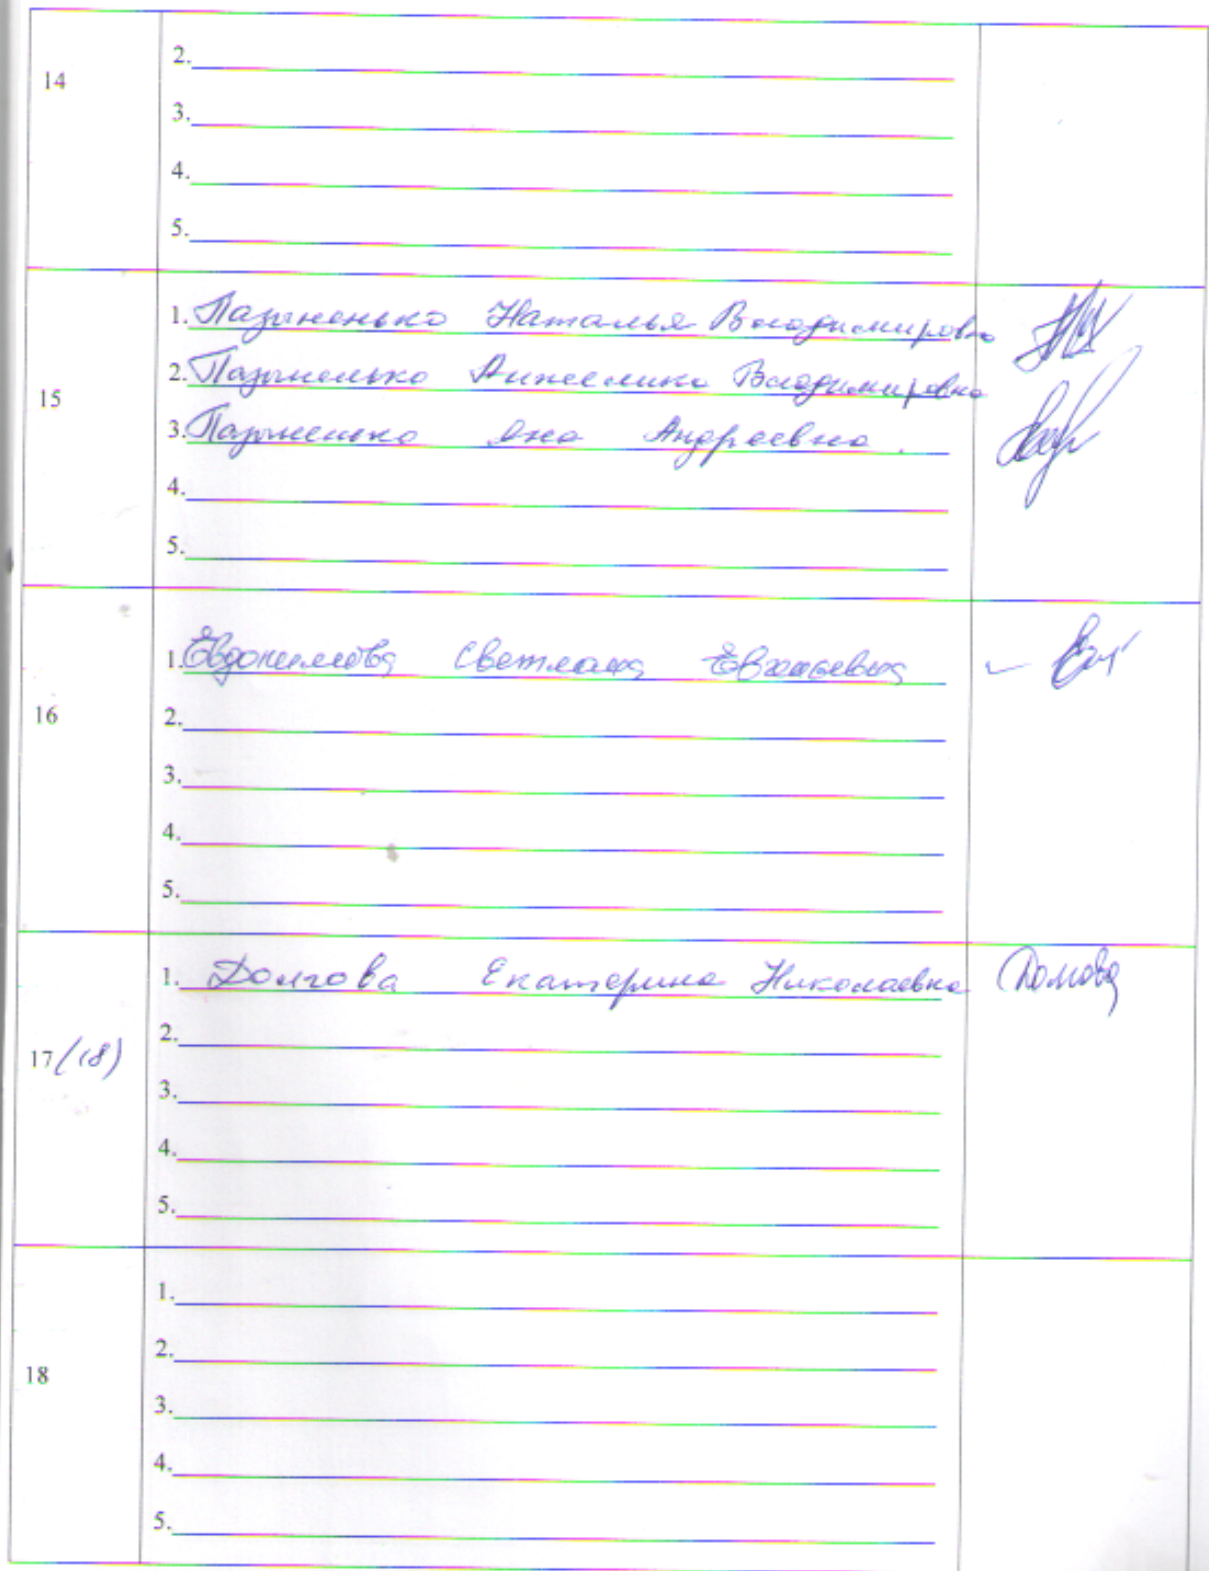 14
2.
3.
4.
5.
15
1. Пазыненько Наталья Владимировна
2. Пазыненько Анжелика Владимировна
3. Пазыненко Яна Андреевна.
4.
5.
16
1. Евдокимова Светлана
2.
3.
4.
5.
17 (18)
1. Долгова Екатерина Николаевна Долгова
2.
3.
4.
5.
18
1.
2.
3.
4.
5.